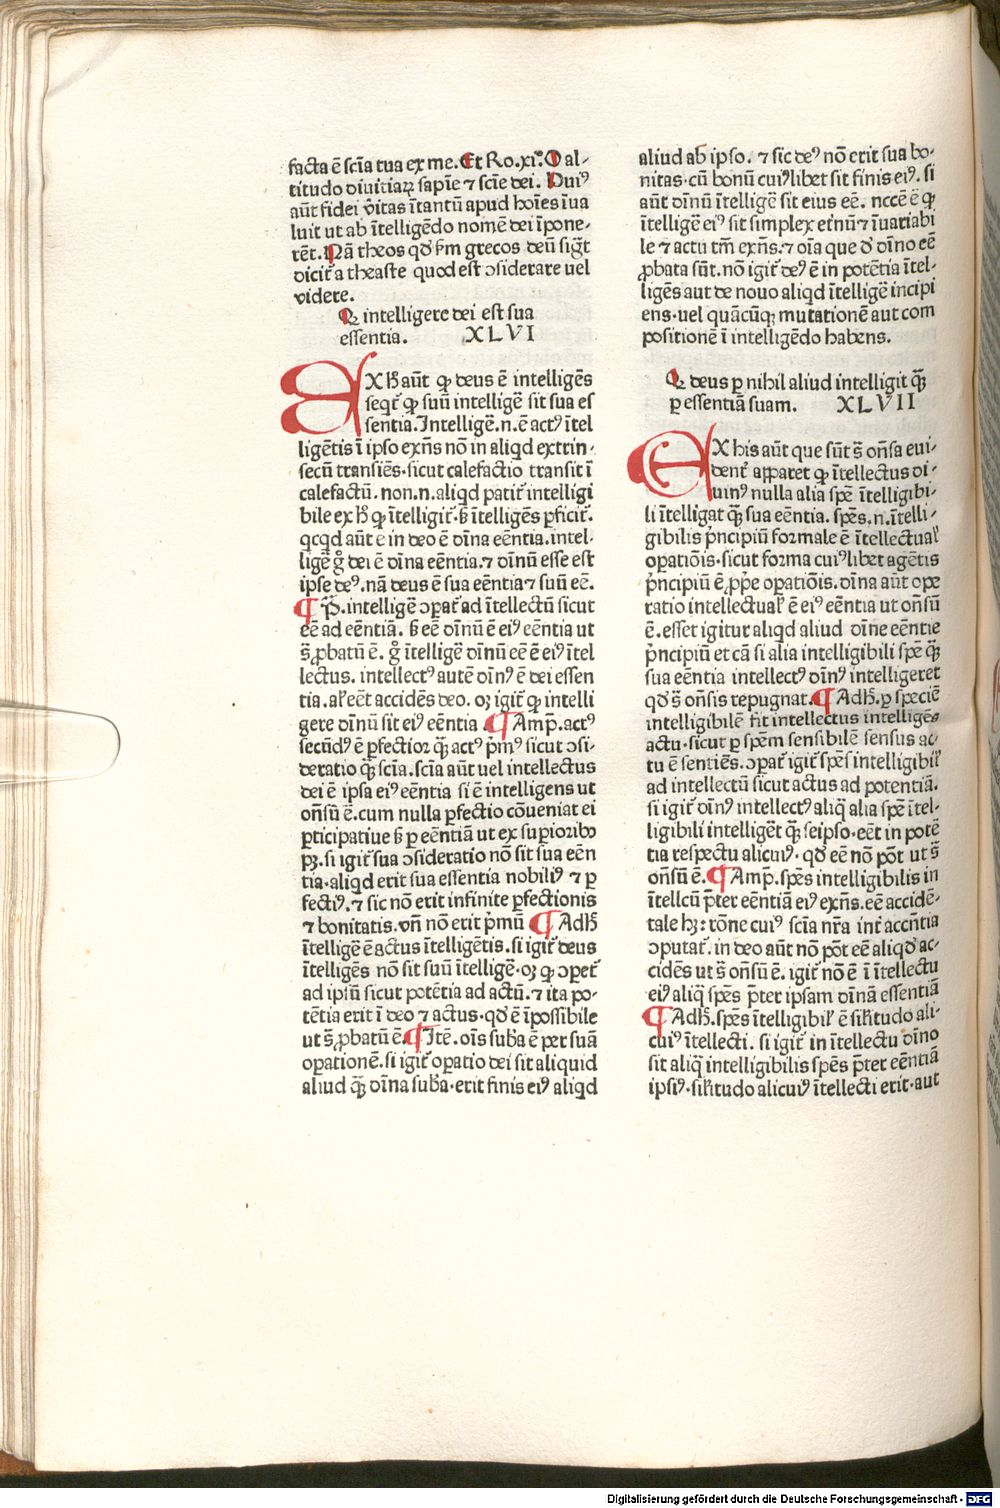 facta ē scīa tua ex me. Et Ro.xi°. O al-
titudo diuitiaꝝ sapīe ⁊ scīe dei. Huiꝰ
aūt fidei v̄itas ītantū apud hoīes īua
luit ut ab ītelligēdo nomē dei īpone-
rēt. Nā theos qd̄ ẜm grecos deū sigt̄
dicit᷑ a theaste quod est ↄsiderare uel
videre.
Qꝫ intelligere dei est sua
essentia. XLVI
EX h̄ aūt ꝙ deus ē intelligēs
seqt᷑ ꝙ suū intelligē sit sua es
sentia. Intelligē.n.ē actꝰ ītel
ligētis ī ipso exn̄s nō in aliqd extrin-
secū transiēs. sicut calefactio transit ī
calefactū. non.n.aliqd patit᷑ intelligi
bile ex h̄ ꝙ ītelligit᷑. ẜ ītelligēs ꝑficit᷑.
qcqd aūt ē in deo ē dīna eēntia. intel-
ligē gͦ dei ē dīna eēntia. ⁊ dīnū esse est
ipse deꝰ. nā deus ē sua eēntia ⁊ suū eē.
¶ P̄. intelligē ↄpat᷑ ad ītellectū sicut
eē ad eēntiā. ẜ eē dīnū ē eiꝰ eēntia ut
s̄ ꝓbatū ē. gͦ ītelligē dīnū eē ē eiꝰ ītel
lectus. intellectꝰ autē dīnꝰ ē dei essen
tia. al̓ eēt accidēs deo. oꝫ igit᷑ ꝙ intelli
gere dīnū sit eiꝰ eēntia ¶ Amp̄. actꝰ
secūdꝰ ē ꝑfectior q̄ꝫ actꝰ p̄mꝰ sicut ↄsi-
deratio q̄ꝫ scīa. scīa aūt uel intellectus
dei ē ipsa eiꝰ eēntia si ē intelligens ut
on̄sū ē. cum nulla ꝑfectio cōueniat ei
ꝑticipatiue ẜ ꝑ eēntiā ut ex suꝑioribꝰ
pꝫ. si igit᷑ sua ↄsideratio nō sit sua eēn
tia. aliqd erit sua essentia nobiliꝰ ⁊ ꝑ
fectiꝰ. ⁊ sic nō erit infinite ꝑfectionis
⁊ bonitatis. vn̄ nō erit p̄mū ¶ Adh̄
ītelligē ē actus ītelligētis. si igit᷑ deus
ītelligēs nō sit suū ītelligē. oꝫ ꝙ ↄꝑet᷑
ad ip̄ū sicut potētia ad actū. ⁊ ita po-
tētia erit ī deo ⁊ actus. qd̄ ē īpossibile
ut s̄ ꝓbatū ē. ¶ Itē. oīs sub̄a ē ꝑer suā
oꝑationē. si igit᷑ oꝑatio dei sit aliquid
aliud q̄ꝫ dīna sub̄a. erit finis eiꝰ aliqd
aliud ab ipso. ⁊ sic deꝰ nō erit sua bo-
nitas. cū bonū cuiꝰlibet sit finis eiꝰ. si
aūt dīnū ītelligē sit eius eē. nccē ē ꝙ
ītelligē eiꝰ sit simplex et̓nū ⁊ īuariabi
le ⁊ actu tm̄ exn̄s. ⁊ oīa que d̄ dīno eē
ꝓbata sūt. nō igit᷑ deꝰ ē in potētia ītel-
ligēs aut de nouo aliqd ītelligē incipi
ens. uel quācūqꝫ mutationē aut com
positionē ī intelligēdo habens.
Qꝫ deus ꝑ nihil aliud intelligit q̄ꝫ
ꝑ essentiā suam. XLVII
EX his aūt que sūt s̄ on̄sa eui-
dent᷑ apparet ꝙ ītellectus di-
uinꝰ nulla alia sp̄e ītelligibi-
li ītelligat q̄ꝫ sua eēntia. sp̄es.n.ītelli-
gibilis p̄ncipiū formale ē ītellectual̓
oꝑatiōis. sicut forma cuiꝰlibet agētis
p̄ncipiū ē ꝓp̄e oꝑatiōis. dīna aūt oꝑe
ratio intellectual̓ ē eiꝰ eēntia ut on̄sū
ē. esset igitur aliqd aliud dīne eēntie
p̄ncipiū et cā si alia intelligibili sp̄e q̄ꝫ
sua eēntia intellectꝰ dīnꝰ intelligeret
qd̄ s̄ on̄sis repugnat. ¶ Adh̄. ꝑ speciē
intelligibilē fit intellectus intelligēs
actu. sicut ꝑ sp̄em sensibilē sensus ac-
tu ē sentiēs. ↄpat᷑ igit᷑ sp̄es intelligibil̓
ad intellectū sicut actus ad potentiā.
si igit᷑ dīnꝰ intellectꝰ aliq̄ alia sp̄e ītel-
ligibili intelligēt q̄ꝫ seipso. eēt in potē
tia respectu alicuiꝰ. qd̄ eē nō pōt ut s̄
on̄sū ē. ¶ Amp̄. sp̄es intelligibilis in
ītellcū p̄ter eēntiā eiꝰ exn̄s. eē accidē-
tale hꝫ: rōne cuiꝰ scīa nr̄a int̓ accn̄tia
ↄputat᷑. in deo aūt nō pōt eē aliqd̄ ac-
cidēs ut s̄ on̄sū ē. igit᷑ nō ē ī ītellectu
eiꝰ aliq̄ sp̄es p̄ter ipsam dīnā essentiā
¶ Adh̄. sp̄es ītelligibil̓ ē sil̓itudo ali-
cuiꝰ ītellecti. si igit᷑ in ītellectu dīno
sit aliq̄ intelligibilis sp̄es p̄ter eēntiā
ipsiꝰ. sil̓itudo alicuiꝰ ītellecti erit. aut
Digitalisierung gefördert durch die Deutsche Forschungsgemeinschaft - DFG